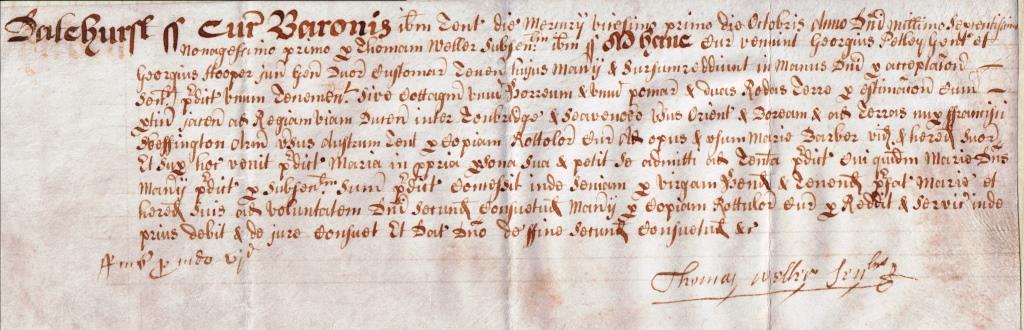 Dalehurst ss Cur Baronis ibm Tent die Mercurij vicesimo primo die Octobris Anno Dni Millimo Sexcentesimo
Nonagesimo primo p Thomam Weller Subsen ibm ss Ad hanc Cur veniunt Georgius Petley Gent et
Georgius Hooper jun Gen Duo Customar Tenen hujus Manij & Sursumreddiderunt in Manus Dni p acceptacon
Sen pdict unum Tenement Sive Cottagm unu Horreum & unu pomar & duas Rodas Terre p estimacon cum
ptin jacen ad Regiam viam Ducen inter Tonbridge & Seavenocke vsus Orient & Boream & ad Terras nup Francisci
olim vsus Austrum Tent p Copiam Rottulor Cur Ad opus & usum Marie Barber vid & hered Suor
Et Sup hoc venit pdict Maria in ppria psona Sua & petit Se admitti ad Tenta pdict Cui quidem Marie Dns
Manij pdict p Subsen Suum pdict Concessit inde Seisinam p virgam Hend & Tenend pfat Marie et
hered Suis ad voluntatem Dni Secund Consuetud Manij p Copiam Rottulor Cur p Reddit & Servic inde
prius debit & de jure Consuet Et Dat Dno de ffine Secund Consuetud &c
vjd
Thomas Weller